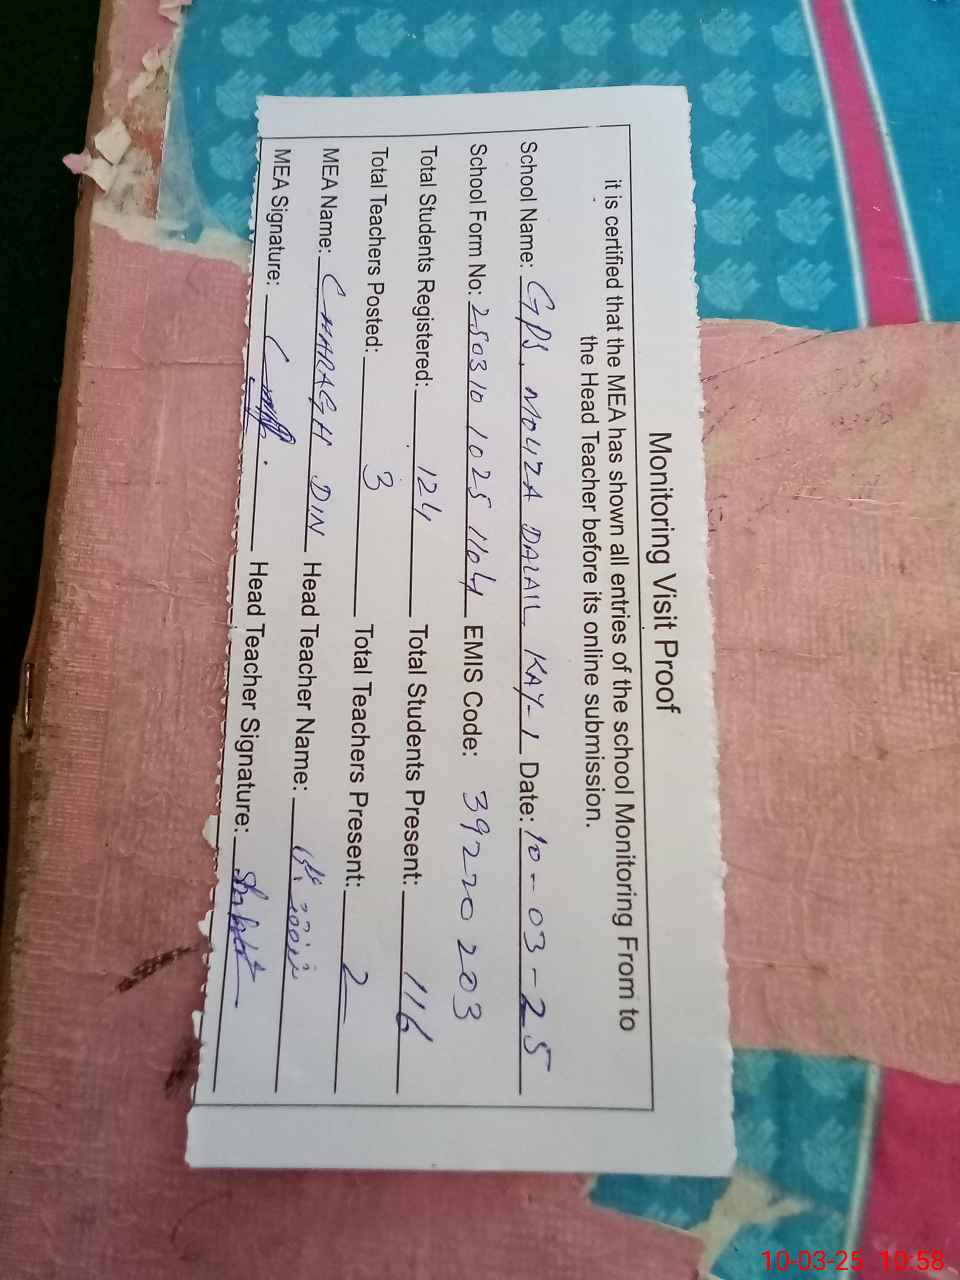 Monitoring Visit Proof
it is certified that the MEA has shown all entries of the school Monitoring From to
the Head Teacher before its online submission.
School Name: GPS. MOUZA DALAIL KAY-1 Date: 10-03-25
School Form No: 250310 1025 1104 EMIS Code: 39220203
Total Students Registered: 124 Total Students Present: 116
Total Teachers Posted: 3 Total Teachers Present: 2
MEA Name: CHARAGH DIN Head Teacher Name:
MEA Signature: Head Teacher Signature:
10-03-25 10:58